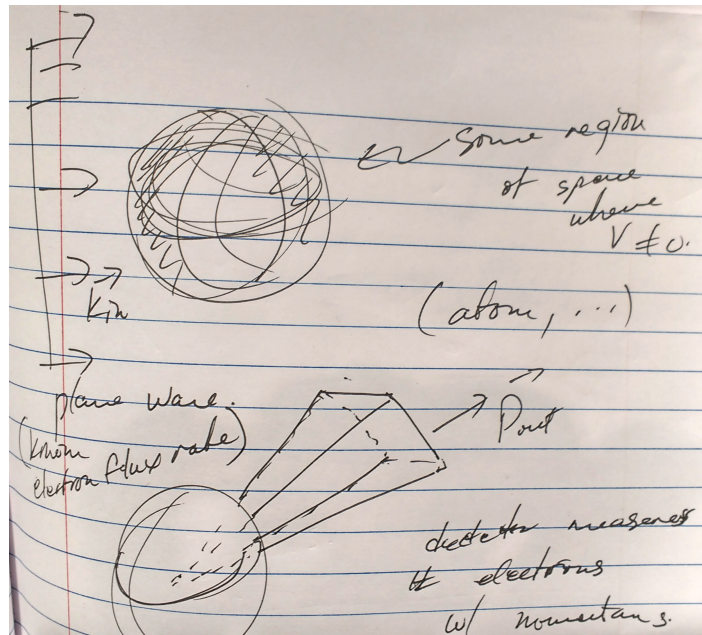 some region
of space
where
V ≠ 0.
Kin
(atom, ...)
plane wave.
(known
electron flux rate)
Pout
detector measures
# electrons
w/ momentum